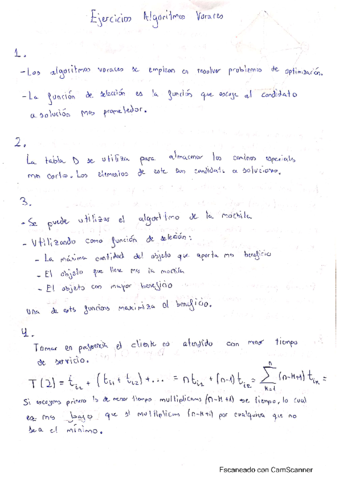 Ejercicios Algoritmos Voraces
1.
- Los algoritmos voraces se emplean en resolver problemas de optimización.
- La función de selección es la función que escoge al candidato
a solución mas prometedor.
2.
La tabla D se utiliza para almacenar los caminos especiales
mas corto. Los elementos de este son candidatos a soluciones.
3.
- Se puede utilizar el algoritmo de la mochila
- Utilizando como función de selección:
- La máxima cantidad del objeto que aporta mas beneficio
- El objeto que llene mas la mochila
- El objeto con mayor beneficio
una de estas funciones maximiza el beneficio.
4.
Tomar en preferencia el cliente no atendido con menor tiempo
de servicio.
T(I) = t_i1 + (t_i1 + t_i2) + ... = n t_i1 + (n-1) t_i2 = Σ (n-k+1) t_ik =
Si escogemos primero los de menor tiempo multiplicamos (n-k+1) ese tiempo, lo cual
es mas bajo que si multiplicamos (n-k+1) por cualquiera que no
sea el mínimo.
Escaneado con CamScanner